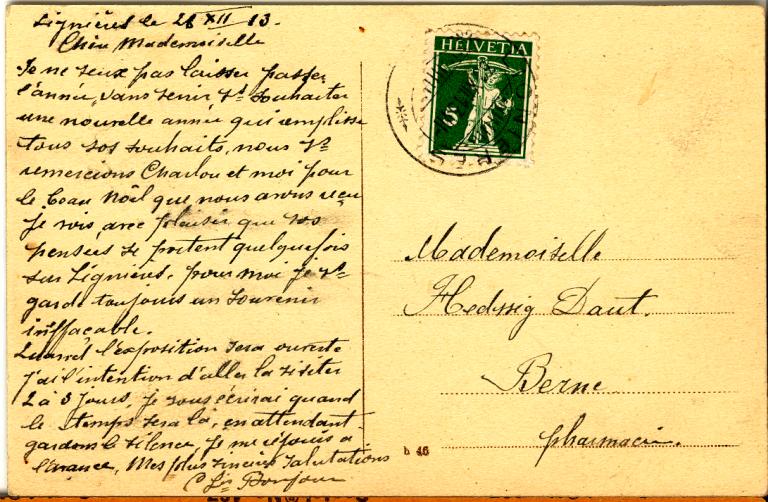 Lignières le 28 XII 13.
Chère Mademoiselle
Je ne veux pas laisser passer
l'année, sans venir, vs souhaiter
une nouvelle année qui emplisse
tous vos souhaits, nous vs
remercions Charlou et moi pour
le beau Noël que nous avons reçu
je vois avec plaisir que vos
pensées se portent quelquefois
sur Lignières, pour moi je vs
garde toujours un souvenir
inffaçable.
Quand l'exposition sera ouverte
j'ai l'intention d'aller la visiter
2 à 3 jours, je vous écrirai quand
le temps sera là, en attendant
gardons le silence je me réjouis a
l'avance, Mes plus sincères salutations
Bonjour
HELVETIA
5
Mademoiselle
Hedwig Daut.
Berne
pharmacie.
b 46